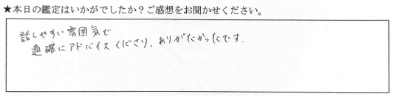 ★本日の鑑定はいかがでしたか？ご感想をお聞かせください。
話しやすい雰囲気で
適確にアドバイスくださり、ありがたかったです。